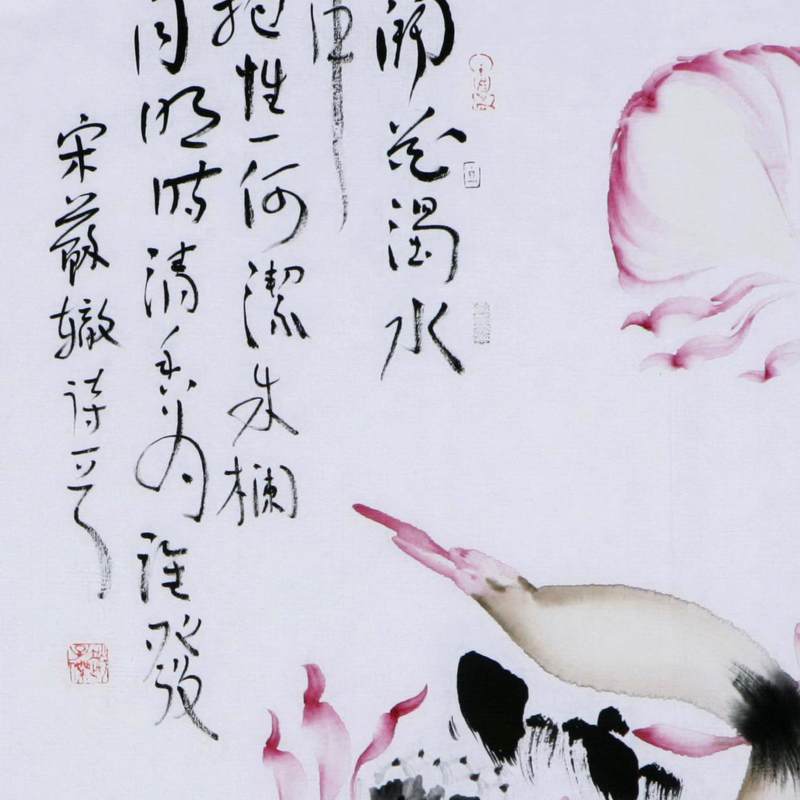 開花濁水
中
抱性一何潔朱欄
月明時清香為誰發
宋蘇轍詩一首